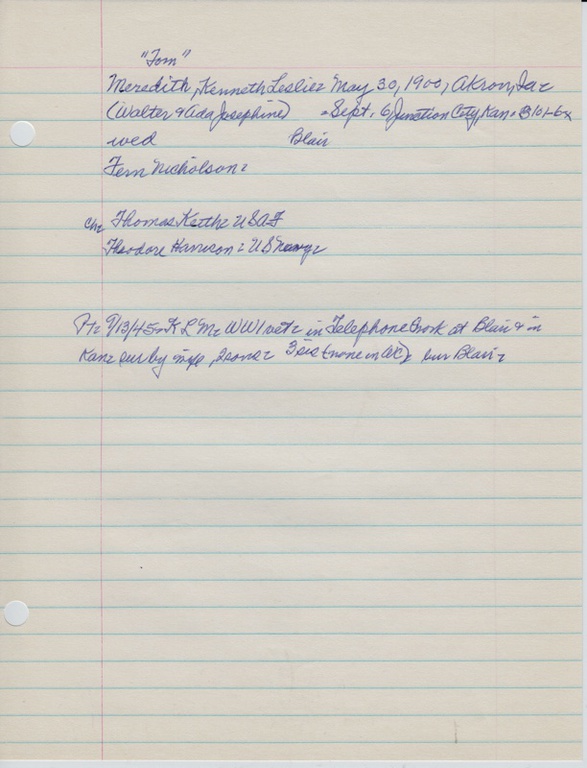 "Tom"
Meredith, Kenneth Leslie = May 30, 1900, Akron, Ia =
(Walter & Ada Josephine) = Sept. 6, Junction City, Kan =
wed Blair
Fern Nicholson =
ch = Thomas Keith = USAF
Theodore Harrison = US Navy =
9/13/45 = K L M = WW1 vet = in Telephone work at Blair & in
Kan = sur by wife, 2 sons = 3 sis (none in WC) = bur Blair =